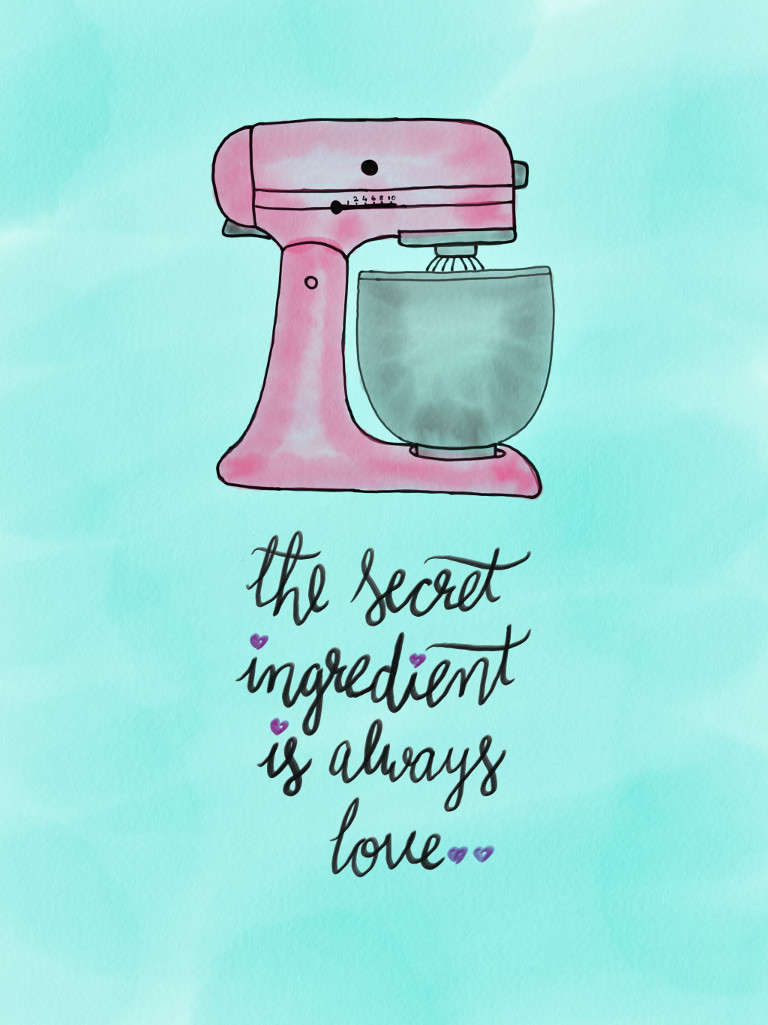 2 4 6 8 10
the secret
ingredient
is always
love